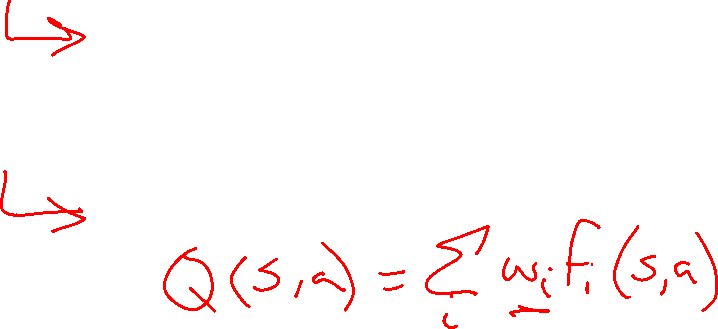 Q(s,a) = Σ_i w_i f_i(s,a)